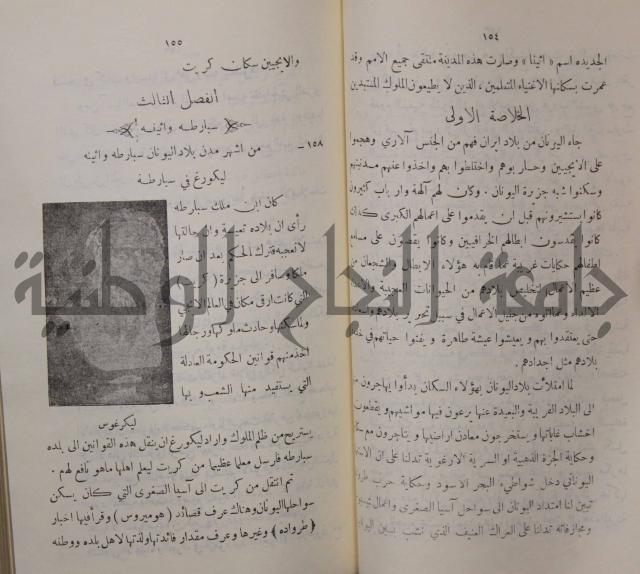 ١٥٤
الجديده اسم « اثينا » وصارت هذه المدينة ملتقى جميع الامم وقد
عمرت بسكانها الاغنياء المتعلمين ، الذين لا يطيعون الملوك المستبدين
الخلاصة الاولى
جاء اليونان من بلاد ايران فهم من الجنس الآري وهجموا
على الايجيين وحاربوهم واختلطوا بهم واخذوا عنهم مدنيتهم
وسكنوا شبه جزيرة اليونان . وكان لهم آلهة وارباب كثيرون
كانوا يستشيرونهم قبل ان يقدموا على اعمالهم الكبرى كذلك
كانوا يقدسون ابطالهم الخرافيين وكانوا يقصون على مسامع
اطفالهم حكايات غريبة عما قام به هؤلاء الابطال والشجعان من
عظيم الاعمال لتخليص بلادهم من الحيوانات
من جليل الاعمال في سبيل تحرير بلادهم
حتى يعتقدوا بهم و يعيشوا عيشة طاهرة و يفنوا حياتهم في
بلادهم مثل اجدادهم .
لما امتلأت بلاد اليونان بهؤلاء السكان بدأوا يهاجرون
الى البلاد القريبة والبعيدة عنها يرعون فيها مواشيهم ويقطعون
اخشاب غاباتها و يستخرجون معادن اراضيها و يتاجرون مع
وحكاية الجزة الذهبية او السرية الارغوية تدلنا على ان
اليوناني دخل شواطيء البحر الاسود وحكاية حرب
تبين لنا امتداد اليونان الى سواحل آسيا الصغرى واعمال
ومجازفاته تدلنا على العراك العنيف الذي نشب بين
١٥٥
والايجيين سكان كريت
الفصل الثالث
سبارطه واثينه
١٥٨ - من اشهر مدن بلاد اليونان سبارطه واثينه
ليكورغ في سبارطة
كان ابن ملك سبارطه
رأى ان بلاده تعيسة وان حالتها
لا تعجبه فترك الحكم بعد ان صار
ملكا وسافر الى جزيرة ( كريت )
التي كانت ارقى مكان في العالم الايجي
ولما سكنها وحادث ملوكها ورجالها
اخذ منهم قوانين الحكومة العادلة
التي يستفيد منها الشعب و بها
ليكرغوس
يستريح من ظلم الملوك واراد ليكورغ ان ينقل هذه القوانين الى بلده
سبارطه فارسل معلما عظيما من كريت ليعلم اهلها ما هو نافع لهم .
ثم انتقل من كريت الى آسيا الصغرى التي كان يسكن
سواحلها اليونان وهناك عرف قصائد ( هوميروس ) وقرأ فيها اخبار
( طرواده ) وغيرها وعرف مقدار فائدتها ولذتها لاهل بلده ووطنه
جامعة النجاح الوطنية